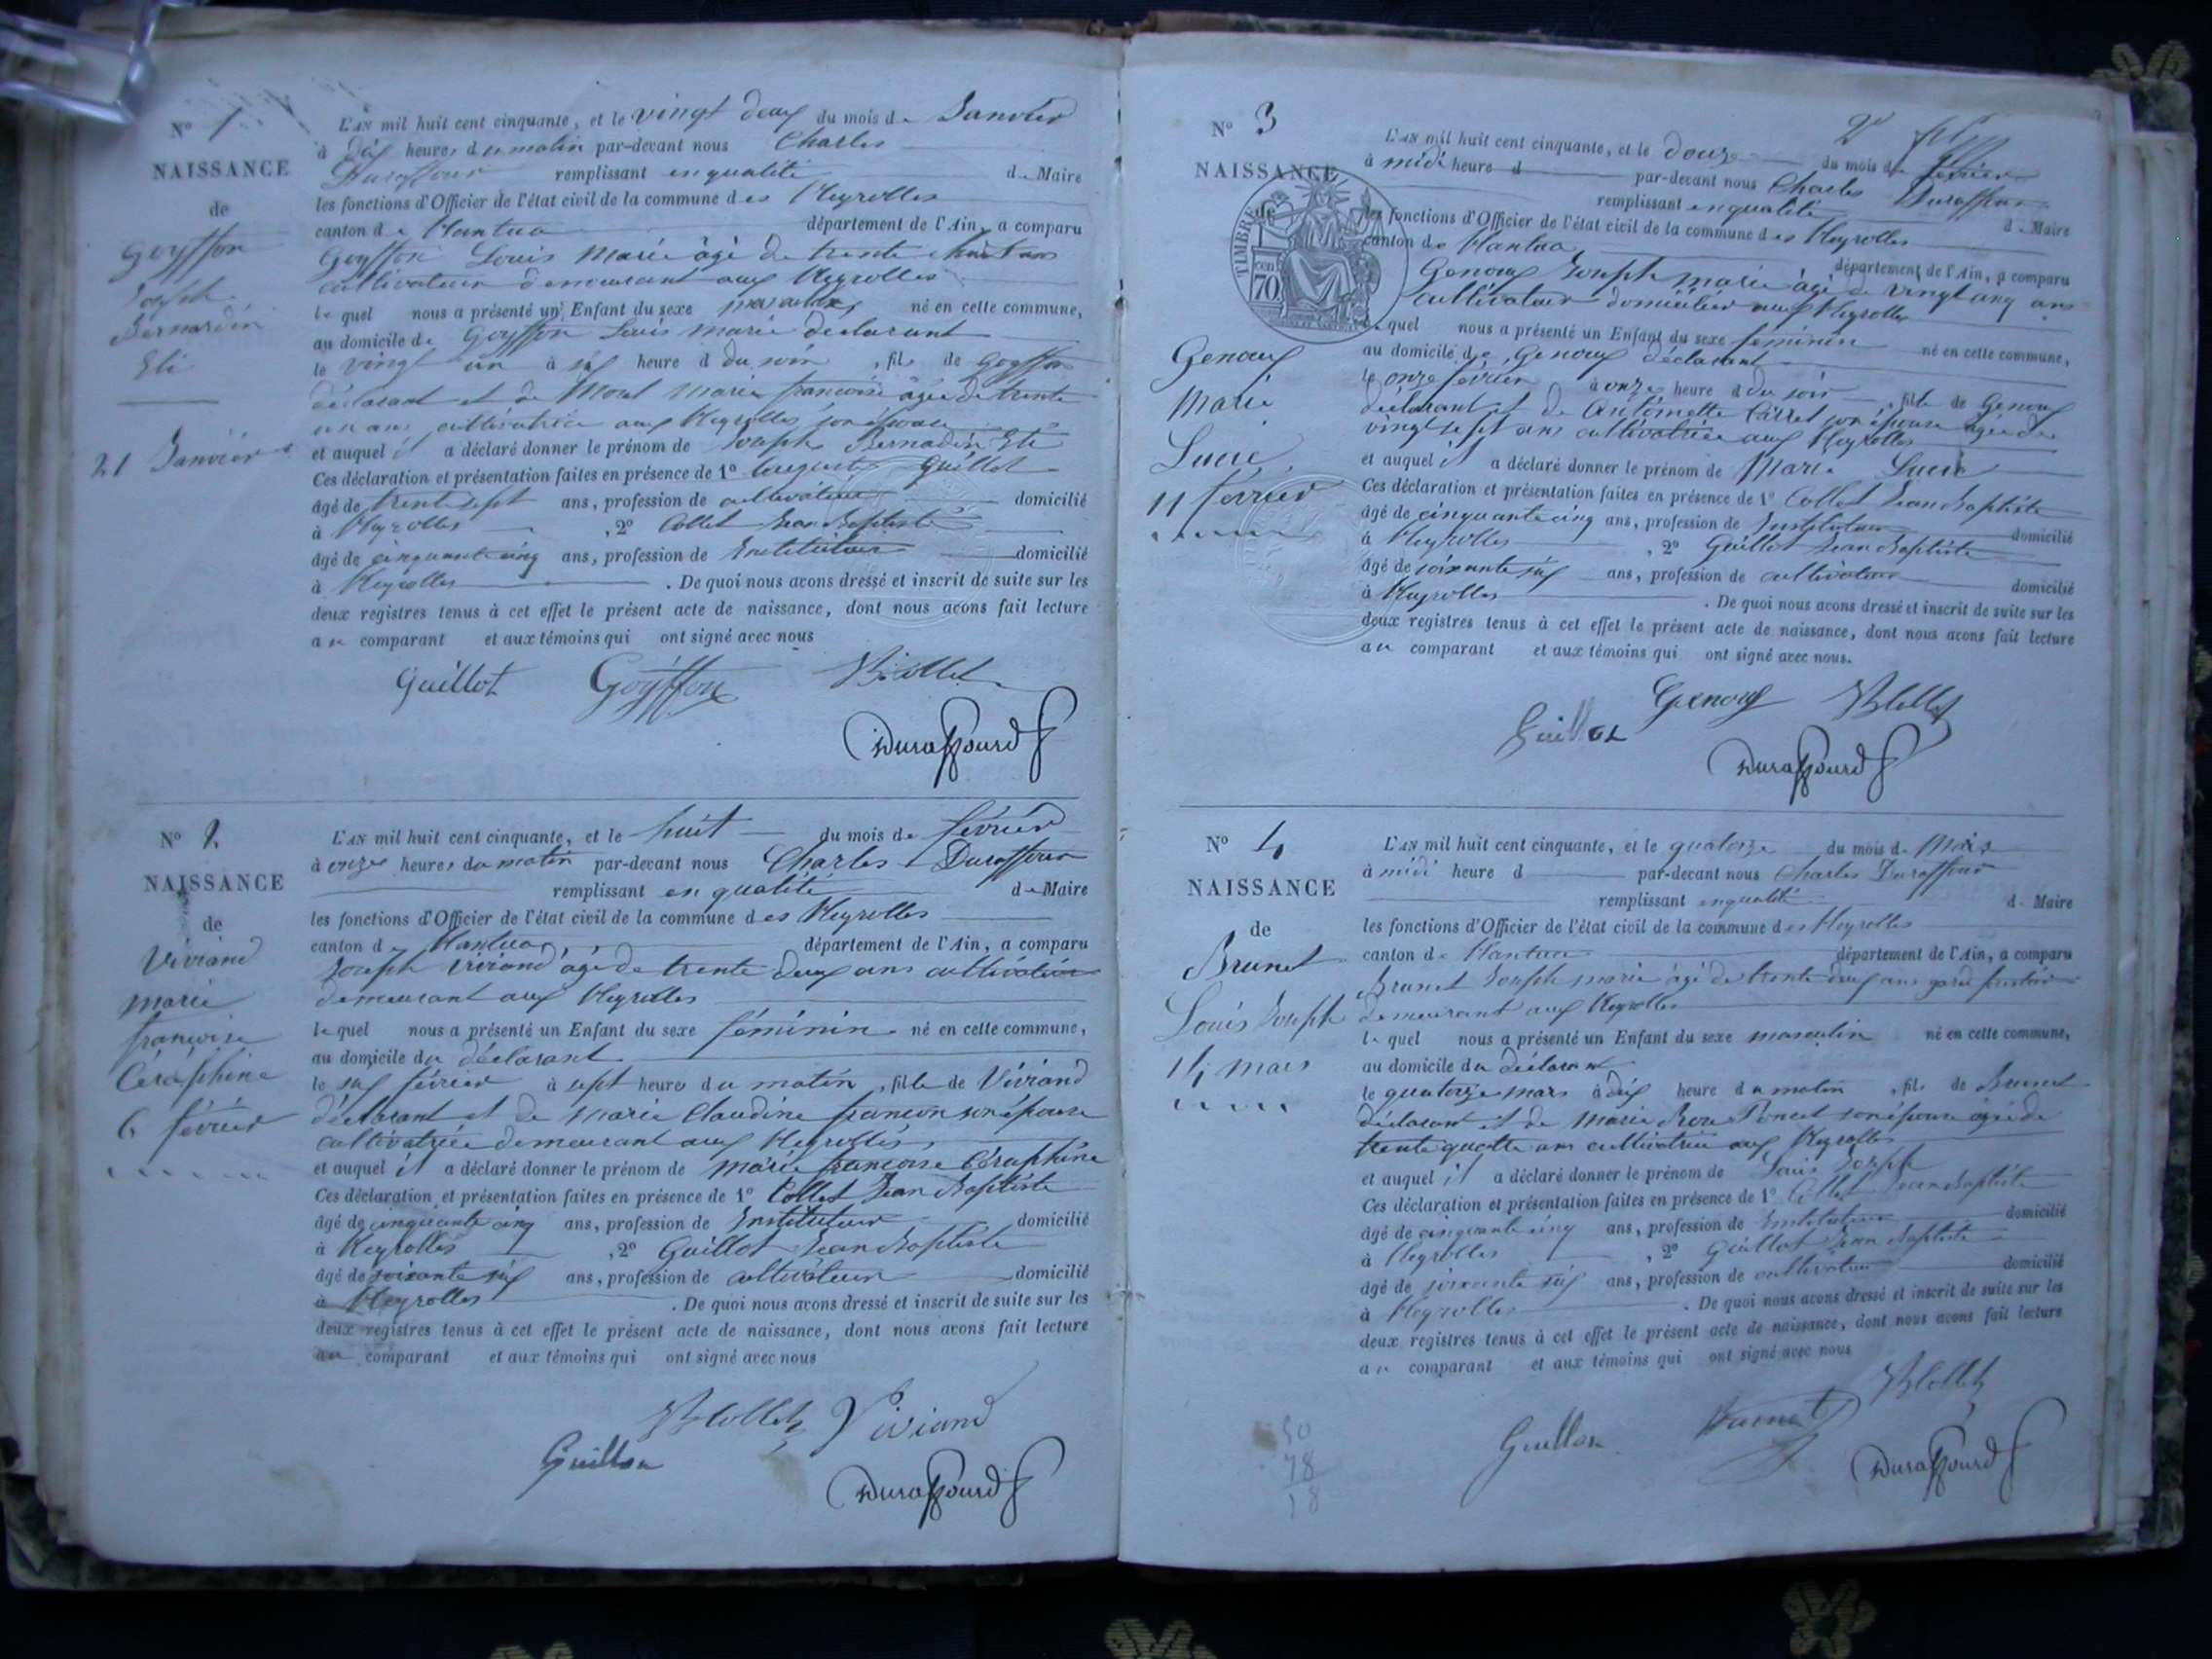 N° 1
NAISSANCE
de
Goyffon
Joseph
Bernardin
Eli
21 Janvier
L'AN mil huit cent cinquante, et le vingt deux du mois de Janvier
à dix heures du matin par-devant nous Charles
Duraffour remplissant en qualité de Maire
les fonctions d'Officier de l'état civil de la commune des Neyrolles
canton de Nantua département de l'Ain, a comparu
Goyffon Louis Marie âgé de trente huit ans
cultivateur demeurant aux Neyrolles
lequel nous a présenté un Enfant du sexe masculin né en cette commune,
au domicile de Goyffon Louis marie declarant
le vingt un à six heure d du soir, fils de Goyffon
déclarant et de Marie françoise âgée de trente
un ans cultivatrice aux Neyrolles son épouse
et auquel il a déclaré donner le prénom de Joseph Bernadin Eli
Ces déclaration et présentation faites en présence de 1° Auguste Guillot
âgé de trente sept ans, profession de cultivateur domicilié
à Neyrolles, 2° Collet Jean Baptiste
âgé de cinquante cinq ans, profession de Instituteur domicilié
à Neyrolles. De quoi nous avons dressé et inscrit de suite sur les
deux registres tenus à cet effet le présent acte de naissance, dont nous avons fait lecture
au comparant et aux témoins qui ont signé avec nous
Guillot Goyffon Collet
Duraffourd
N° 2
NAISSANCE
de
Viviand
marie
françoise
Céraphine
6 février
L'AN mil huit cent cinquante, et le huit du mois de février
à onze heures du matin par-devant nous Charles Duraffour
remplissant en qualité de Maire
les fonctions d'Officier de l'état civil de la commune des Neyrolles
canton de Nantua département de l'Ain, a comparu
Joseph Viviand âgé de trente deux ans cultivateur
demeurant aux Neyrolles
lequel nous a présenté un Enfant du sexe féminin né en cette commune,
au domicile du déclarant
le six février à sept heures du matin, fille de Viviand
déclarant et de Marie Claudine françon son épouse
cultivatrice demeurant aux Neyrolles
et auquel il a déclaré donner le prénom de marie françoise Céraphine
Ces déclaration et présentation faites en présence de 1° Collet Jean Baptiste
âgé de cinquante cinq ans, profession de Instituteur domicilié
à Neyrolles, 2° Guillot Jean Baptiste
âgé de soixante six ans, profession de cultivateur domicilié
à Neyrolles. De quoi nous avons dressé et inscrit de suite sur les
deux registres tenus à cet effet le présent acte de naissance, dont nous avons fait lecture
au comparant et aux témoins qui ont signé avec nous
Collet Viviand
Guillot
Duraffourd
N° 3
NAISSANCE
de
TIMBRE
70
Genoux
Marie
Lucie
11 février
L'AN mil huit cent cinquante, et le douze du mois de février
à midi heure d par-devant nous Charles Duraffour
remplissant en qualité de Maire
les fonctions d'Officier de l'état civil de la commune des Neyrolles
canton de Nantua département de l'Ain, a comparu
Genoux Joseph marie âgé de vingt cinq ans
cultivateur domicilié aux Neyrolles
lequel nous a présenté un Enfant du sexe féminin né en cette commune,
au domicile de Genoux déclarant
le onze février à onze heure d du soir, fille de Genoux
déclarant et de Antoinette Carret son épouse âgée de
vingt sept ans cultivatrice aux Neyrolles
et auquel il a déclaré donner le prénom de Marie Lucie
Ces déclaration et présentation faites en présence de 1° Collet Jean Baptiste
âgé de cinquante cinq ans, profession de Instituteur domicilié
à Neyrolles, 2° Guillot Jean Baptiste
âgé de soixante six ans, profession de cultivateur domicilié
à Neyrolles. De quoi nous avons dressé et inscrit de suite sur les
deux registres tenus à cet effet le présent acte de naissance, dont nous avons fait lecture
au comparant et aux témoins qui ont signé avec nous.
Guillot Genoux Collet
Duraffourd
N° 4
NAISSANCE
de
Brunet
Louis Joseph
14 mars
L'AN mil huit cent cinquante, et le quatorze du mois de Mars
à midi heure d par-devant nous Charles Duraffour
remplissant en qualité de Maire
les fonctions d'Officier de l'état civil de la commune des Neyrolles
canton de Nantua département de l'Ain, a comparu
Brunet Joseph marie âgé de trente deux ans garde forestier
demeurant aux Neyrolles
lequel nous a présenté un Enfant du sexe masculin né en cette commune,
au domicile du déclarant
le quatorze mars à dix heure du matin, fils de Brunet
déclarant et de Marie Poncet son épouse âgée de
trente quatre ans cultivatrice aux Neyrolles
et auquel il a déclaré donner le prénom de Louis Joseph
Ces déclaration et présentation faites en présence de 1° Collet Jean Baptiste
âgé de cinquante cinq ans, profession de Instituteur domicilié
à Neyrolles, 2° Guillot Jean Baptiste
âgé de soixante six ans, profession de cultivateur domicilié
à Neyrolles. De quoi nous avons dressé et inscrit de suite sur les
deux registres tenus à cet effet le présent acte de naissance, dont nous avons fait lecture
au comparant et aux témoins qui ont signé avec nous
Guillot Brunet Collet
Duraffourd